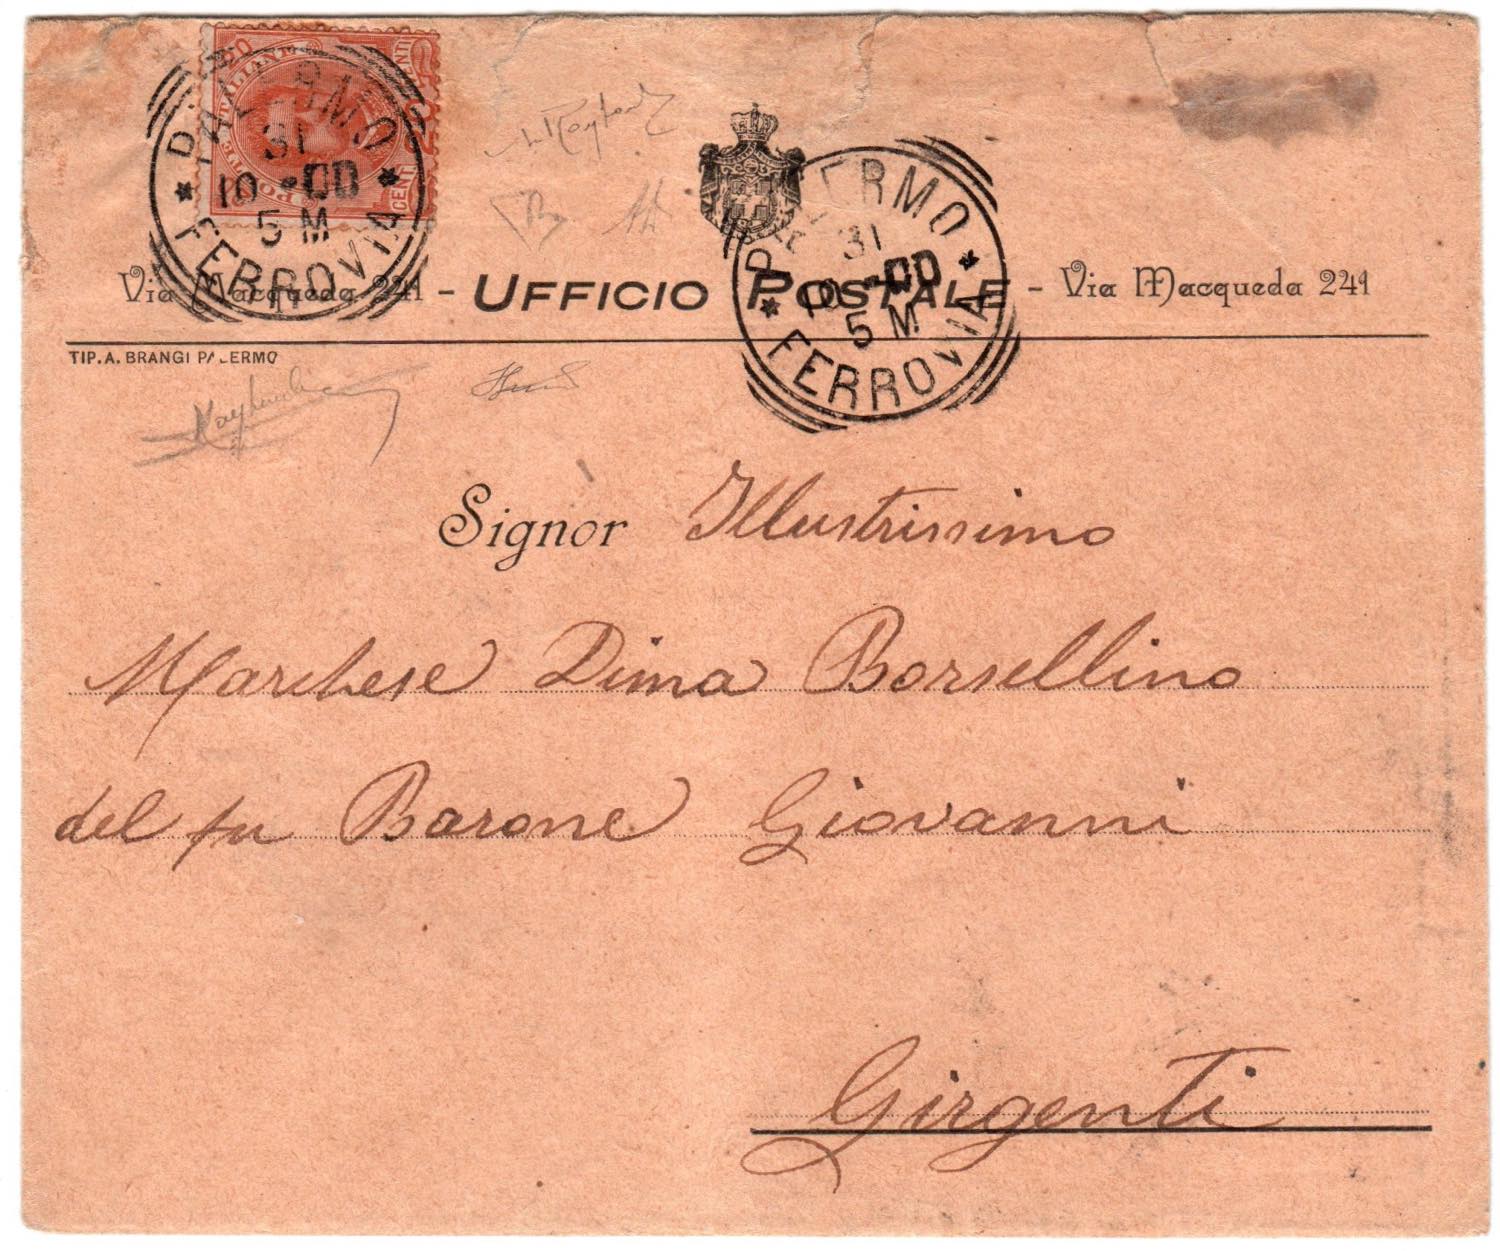 PALERMO
31
10 -00
5 M
FERROVIA
PALERMO
31
10 -00
5 M
FERROVIA
Via Macqueda 241 - UFFICIO POSTALE - Via Macqueda 241
TIP. A. BRANGI PALERMO
Signor Illustrissimo
Marchese Dima Borsellino
del fu Barone Giovanni
Girgenti